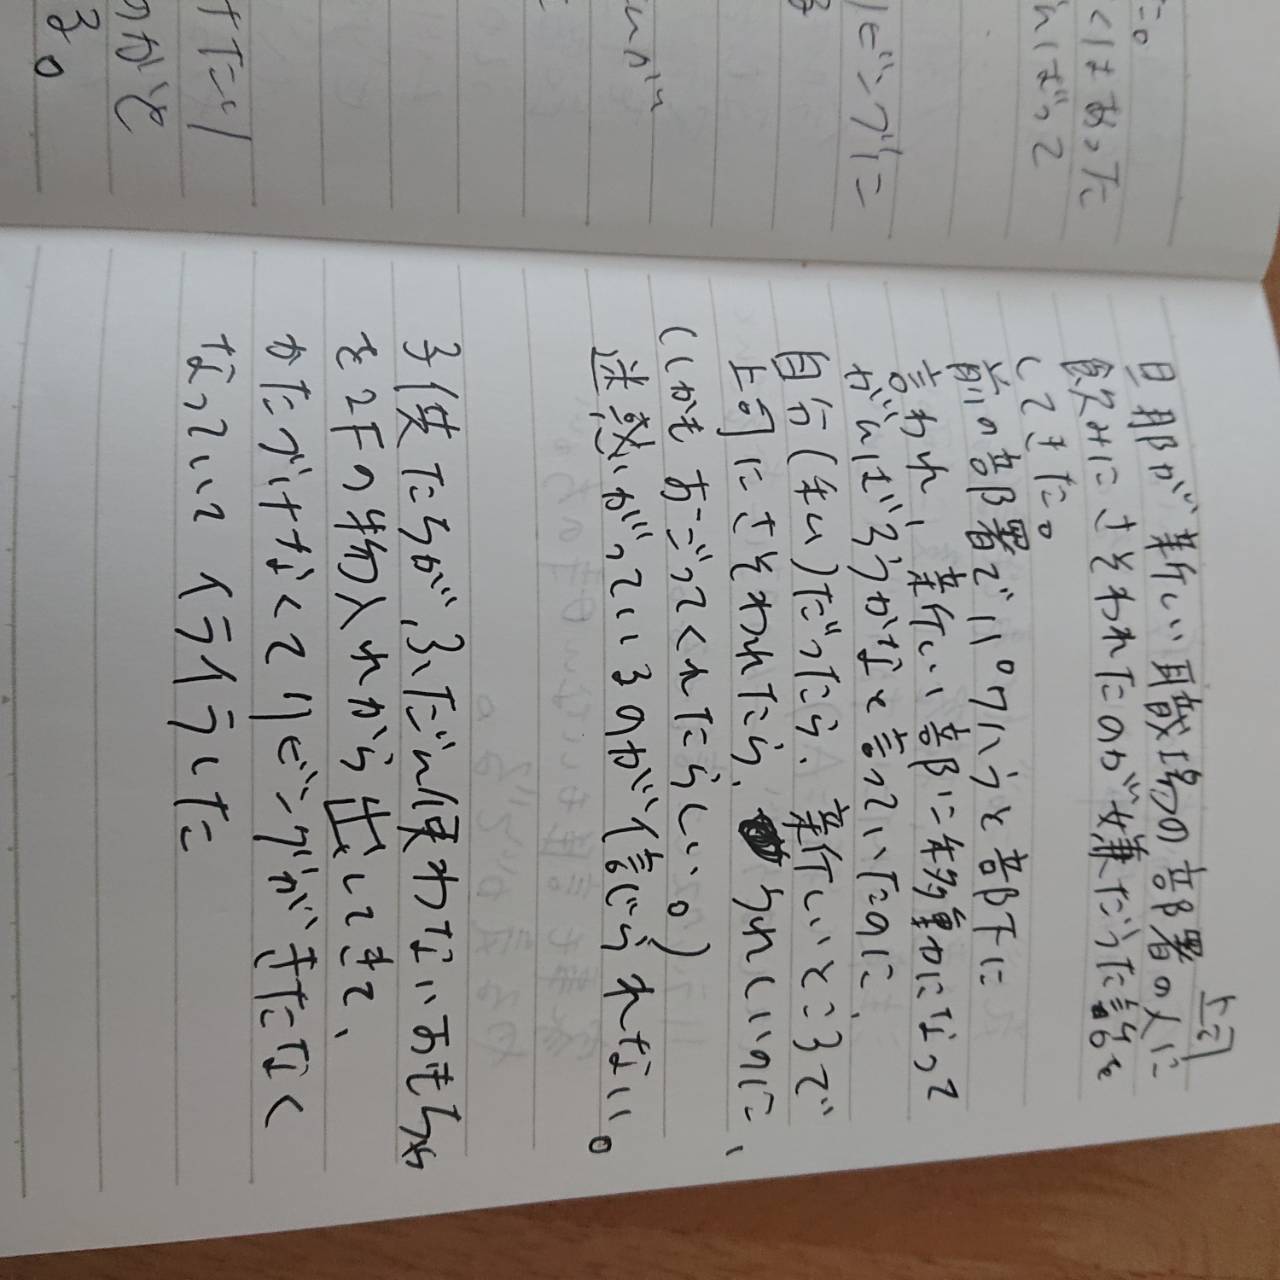 た。
くはあった
んばって
リビングに
なったし
のがと
る。
上司
旦那が新しい職場の部署の人に
飲みにさそわれたのが嫌だった話を
してきた。
前の部署でパワハラと部下に
言われ、新しい部に移動になって
がんばろうかなと言っていたのに、
自分(私)だったら、新しいところで
上司にさそわれたら、うれしいのに、
(しかもおごってくれたらしい。)
迷惑がっているのが信じられない。
子供たちが、ふだん使わないおもちゃ
を2Fの物入れから出してきて、
かたづけなくてリビングがきたなく
なっていて イライラした